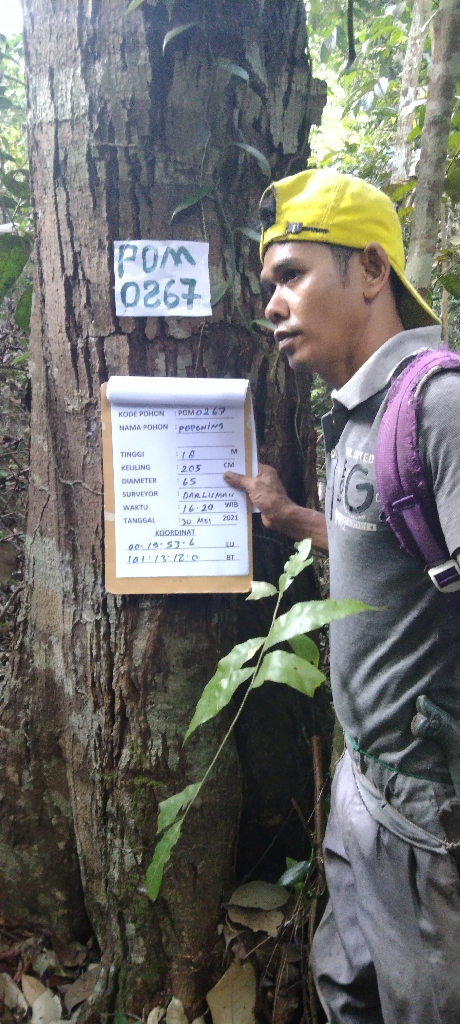 POM
0267
KODE POHON : POM0267
NAMA POHON : POPONING
TINGGI : 18 M
KELILING : 205 CM
DIAMETER : 65
SURVEYOR : DARLISMAN
WAKTU : 16.20 WIB
TANGGAL : 30 MEI 2021
KOORDINAT
00.19.53.6 LU
101.13.12.0 BT
G